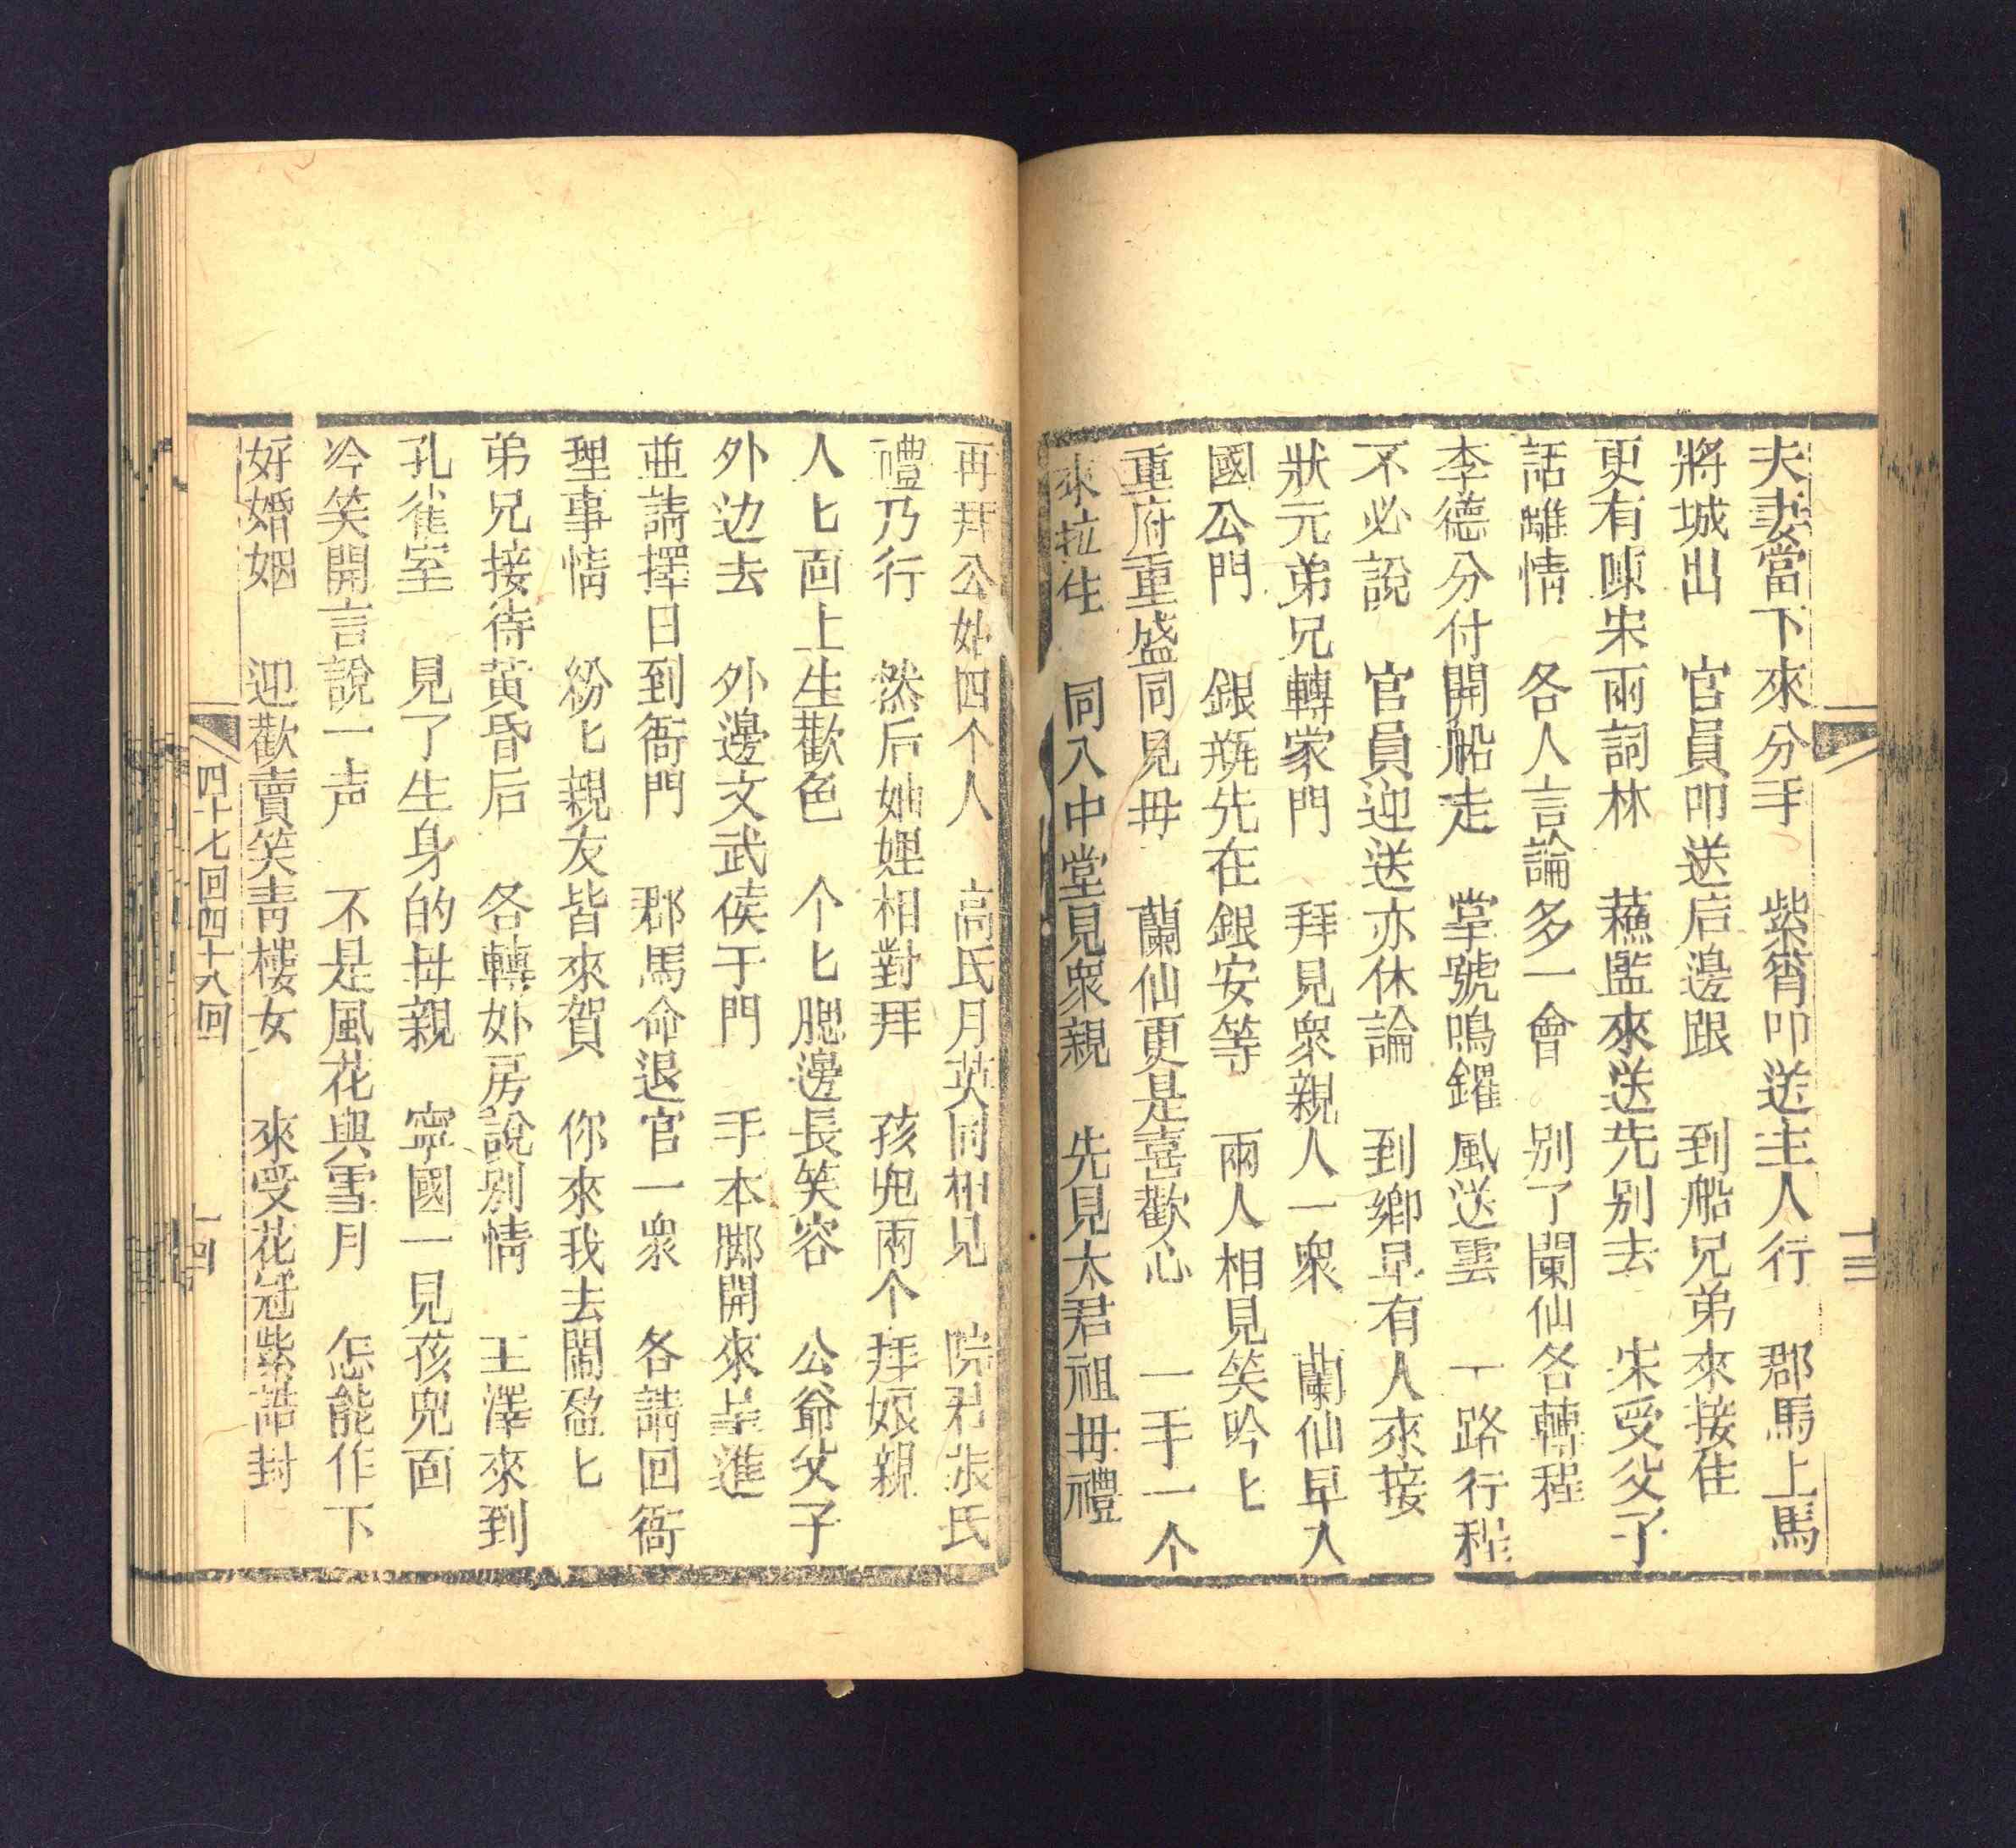 夫妻當下來分手　紫筲叩送主人行　郡馬上馬
將城出　官員叩送后邊跟　到船兄弟來接住
更有陳宋兩詞林　蘓監來送先别去　宋受父子
話離情　各人言論多一會　别了闌仙各轉程
李德分付開船走　掌號鳴鑼風送雲　一路行程
不必說　官員迎送亦休論　到鄉早有人來接
狀元弟兄轉家門　拜見衆親人一衆　蘭仙早入
國公門　銀瓶先在銀安等　兩人相見笑吟匕
重府重盛同見毋　蘭仙更是喜歡心　一手一个
來拉住　同入中堂見衆親　先見太君祖毋禮
十三
再拜公姑四个人　高氏月英同相見　院君張氏
禮乃行　然后妯娌相對拜　孩兒兩个拜娘親
人匕面上生歡色　个匕腮邊長笑容　公爺父子
外边去　外邊文武侯于門　手本脚開來呈進
並請擇日到衙門　郡馬命退官一衆　各請回衙
理事情　紛匕親友皆來賀　你來我去閙盈匕
弟兄接待黃昏后　各轉妳房說别情　王澤來到
孔雀室　見了生身的毋親　寧國一見孩兒面
冷笑開言說一声　不是風花與雪月　怎能作下
好婚姻　迎歡賣笑靑樓女　來受花冠紫誥封
四十七回四十八回